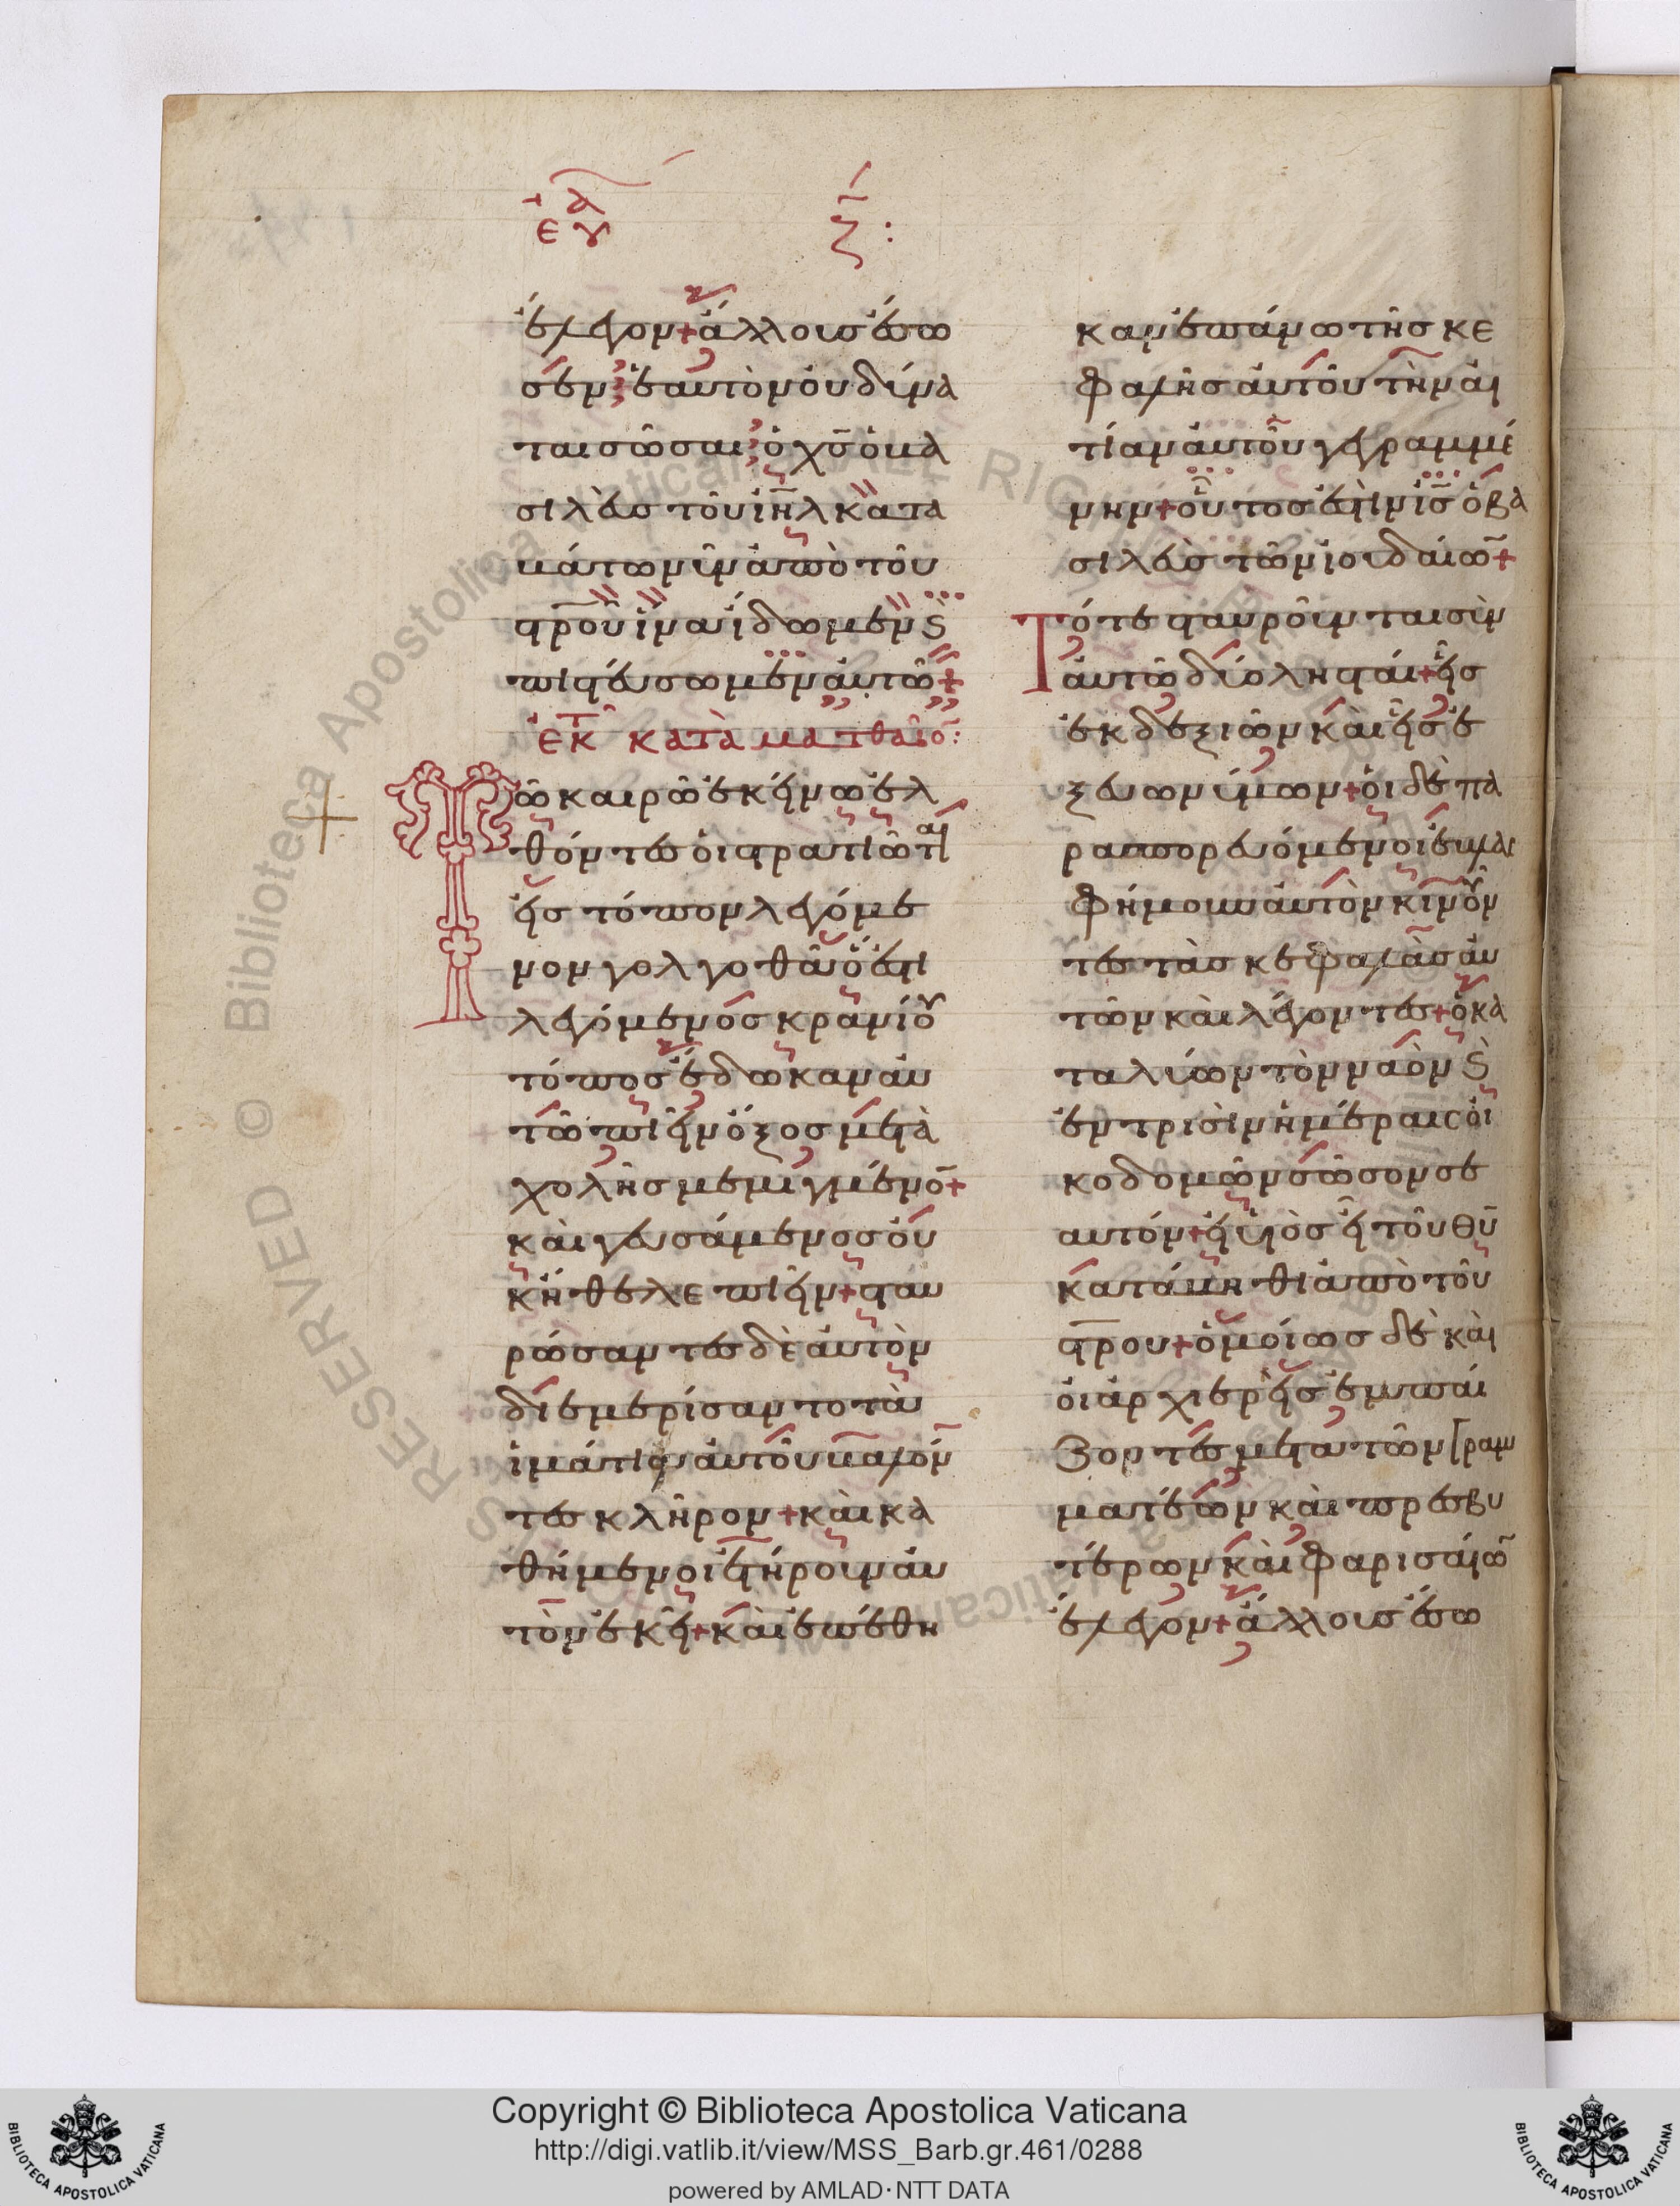 εὐα ζ:
ἔλεγον + ἄλλους ἔσω
σεν· ἑαυτὸν οὐ δύνα
ται σῶσαι· ὁ χσ ὁ βα
σιλεὺς τοῦ ιηλ κατα
βάτω νῦν ἀπὸ τοῦ
στρου ἵνα ἴδωμεν ϗ
πιστεύσωμεν αὐτῶ +
ἐκ τ κατὰ ματθαῖο:
Τῶ καιρῶ ἐκείνω ἐλ
θόντες οἱ στρατιῶται
εἰς τόπον λεγόμε
νον γολγοθᾶ· ὅ ἐστι
λεγόμενος κρανίου
τόπος ἔδωκαν αὐ
τῶ πιεῖν ὄξος μετὰ
χολῆς μεμιγμένο +
καὶ γευσάμενος οὐ
κ ἤθελε πιεῖν + σταυ
ρώσαντες δὲ αὐτὸν
διεμερίσαντο τὰ
ἱμάτια αὐτοῦ βαλόν
τες κλῆρον + καὶ κα
θήμενοι ἐτήρουν αὐ
τὸν ἐκεῖ + καὶ ἐπέθη
καν ἐπάνω τῆς κε
φαλῆς αὐτοῦ τὴν αἰ
τίαν αὐτοῦ γεγραμμέ
νην + οὗτος ἐστὶν ισ ὁ βα
σιλεὺς τῶν ἰουδαίω +
Τότε σταυροῦνται σὺν
αὐτῶ δύο λησταί + εἷς
ἐκ δεξιῶν καὶ εἷς ἐ
ξ εὐωνύμων + οἱ δὲ πα
ραπορευόμενοι ἐβλασ
φήμουν αὐτὸν κινοῦν
τες τὰς κεφαλὰς αὐ
τῶν καὶ λέγοντες + ὁ κα
ταλύων τὸν ναὸν ϗ
ἐν τρισὶν ἡμέραις οἰ
κοδομῶν σῶσον σε
αυτόν + εἰ υἱὸς εἶ τοῦ θυ
κατάβηθι ἀπὸ τοῦ
στρου + ὁμοίως δὲ καὶ
οἱ ἀρχιερεῖς ἐμπαί
ζοντες μετα τῶν γραμ
ματέων καὶ πρεσβυ
τέρων καὶ φαρισαίω
ἔλεγον + ἄλλους ἔσω
© Biblioteca Apostolica Vaticana ALL RIGHTS RESERVED
Copyright © Biblioteca Apostolica Vaticana
http://digi.vatlib.it/view/MSS_Barb.gr.461/0288
powered by AMLAD·NTT DATA
BIBLIOTECA APOSTOLICA VATICANA
BIBLIOTECA APOSTOLICA VATICANA